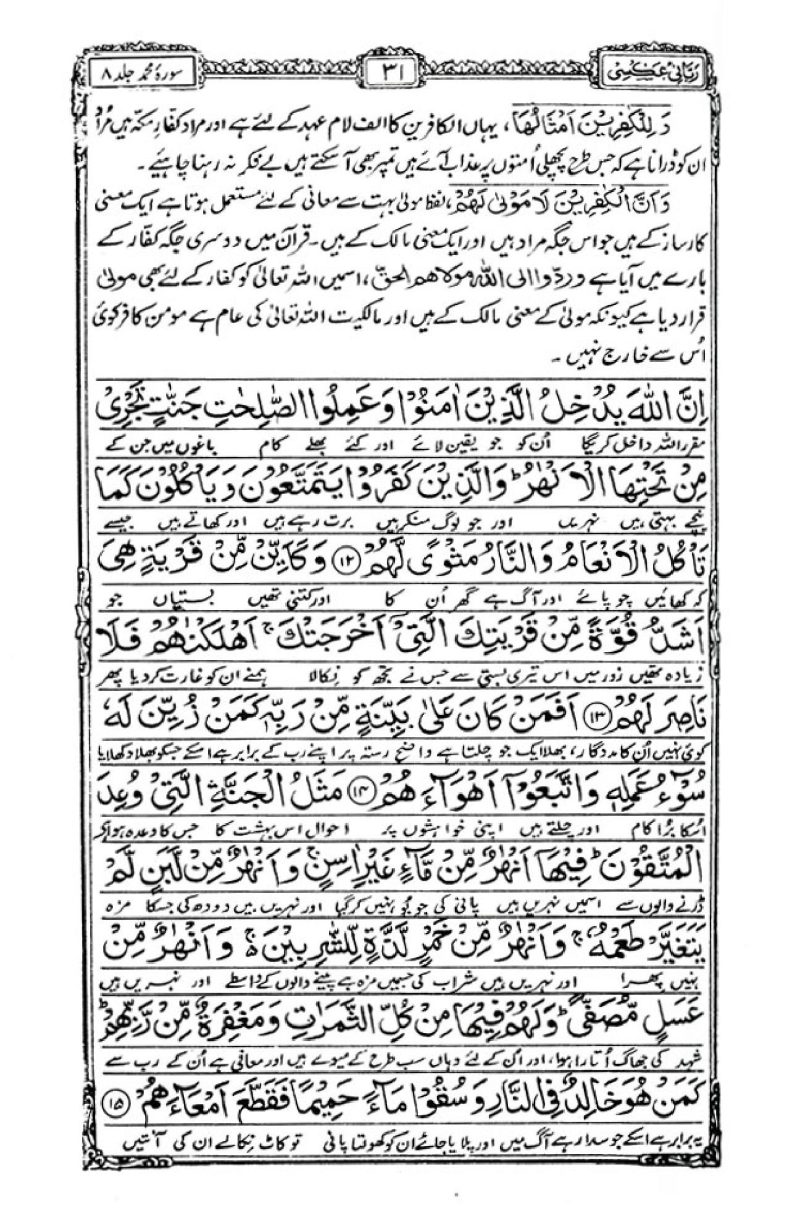 ربانی عکسی
۳۱
سورۂ محمد جلد ۸
وَلِلْكٰفِرِيْنَ اَمْثَالُهَا، یہاں الکافرین کا الف لام عہد کے لئے ہے اور مراد کفار مکہ ہیں مراد
ان کو ڈرانا ہے کہ جس طرح پچھلی اُمتوں پر عذاب آئے ہیں تم پر بھی آسکتے ہیں بے فکر نہ رہنا چاہئے۔
وَاَنَّ الْكٰفِرِيْنَ لَا مَوْلٰى لَهُمْ، لفظ مولیٰ بہت سے معانی کے لئے مستعمل ہوتا ہے ایک معنی
کارساز کے ہیں جو اس جگہ مراد ہیں اور ایک معنی مالک کے ہیں۔ قرآن میں دوسری جگہ کفار کے
بارے میں آیا ہے وردّوا الی اللہ مولاھم الحق، اسمیں اللہ تعالیٰ کو کفار کے لئے بھی مولیٰ
قرار دیا ہے کیونکہ مولیٰ کے معنی مالک کے ہیں اور مالکیت اللہ تعالیٰ کی عام ہے مومن کافر کوئی
اُس سے خارج نہیں۔
اِنَّ اللّٰهَ يُدْخِلُ الَّذِيْنَ اٰمَنُوْا وَعَمِلُوا الصّٰلِحٰتِ جَنّٰتٍ تَجْرِيْ
مقرر اللہ داخل کریگا اُن کو جو یقین لائے اور کئے بھلے کام باغوں میں جن کے
مِنْ تَحْتِهَا الْاَنْهٰرُ ؕ وَالَّذِيْنَ كَفَرُوْا يَتَمَتَّعُوْنَ وَيَاْكُلُوْنَ كَمَا
نیچے بہتی ہیں نہریں اور جو لوگ منکر ہیں برت رہے ہیں اور کھاتے ہیں جیسے
تَاْكُلُ الْاَنْعَامُ وَالنَّارُ مَثْوًى لَّهُمْ ﴿۱۲﴾ وَكَاَيِّنْ مِّنْ قَرْيَةٍ هِيَ
کہ کھائیں چوپائے اور آگ ہے گھر اُن کا اور کتنی تھیں بستیاں جو
اَشَدُّ قُوَّةً مِّنْ قَرْيَتِكَ الَّتِيْٓ اَخْرَجَتْكَ ۚ اَهْلَكْنٰهُمْ فَلَا
زیادہ تھیں زور میں اس تیری بستی سے جس نے تجھ کو نکالا ہمنے ان کو غارت کردیا پھر
نَاصِرَ لَهُمْ ﴿۱۳﴾ اَفَمَنْ كَانَ عَلٰى بَيِّنَةٍ مِّنْ رَّبِّهٖ كَمَنْ زُيِّنَ لَهٗ
کوئی نہیں اُن کا مددگار، بھلا ایک جو چلتا ہے واضح رستہ پر اپنے رب کے برابر ہے اسکے جسکو بھلا دکھلایا
سُوْٓءُ عَمَلِهٖ وَاتَّبَعُوْٓا اَهْوَآءَهُمْ ﴿۱۴﴾ مَثَلُ الْجَنَّةِ الَّتِيْ وُعِدَ
اسکا بُرا کام اور چلتے ہیں اپنی خواہشوں پر احوال اس بہشت کا جس کا وعدہ ہوا ہے
الْمُتَّقُوْنَ ؕ فِيْهَآ اَنْهٰرٌ مِّنْ مَّآءٍ غَيْرِ اٰسِنٍ ۚ وَاَنْهٰرٌ مِّنْ لَّبَنٍ لَّمْ
ڈرنے والوں سے اسمیں نہریں ہیں پانی کی جو بُو نہیں کرگیا اور نہریں ہیں دودھ کی جسکا مزہ
يَتَغَيَّرْ طَعْمُهٗ ۚ وَاَنْهٰرٌ مِّنْ خَمْرٍ لَّذَّةٍ لِّلشّٰرِبِيْنَ ۚ وَاَنْهٰرٌ مِّنْ
نہیں پھرا اور نہریں ہیں شراب کی جسمیں مزہ ہے پینے والوں کے واسطے اور نہریں ہیں
عَسَلٍ مُّصَفًّى ؕ وَلَهُمْ فِيْهَا مِنْ كُلِّ الثَّمَرٰتِ وَمَغْفِرَةٌ مِّنْ رَّبِّهِمْ ؕ
شہد کی جھاگ اُتارا ہوا، اور اُن کے لئے وہاں سب طرح کے میوے ہیں اور معافی ہے اُن کے رب سے
كَمَنْ هُوَ خَالِدٌ فِي النَّارِ وَسُقُوْا مَآءً حَمِيْمًا فَقَطَّعَ اَمْعَآءَهُمْ ﴿۱۵﴾
یہ برابر ہے اسکے جو سدا رہے آگ میں اور پلایا جائے اُن کو کھولتا پانی تو کاٹ نکالے ان کی آنتیں